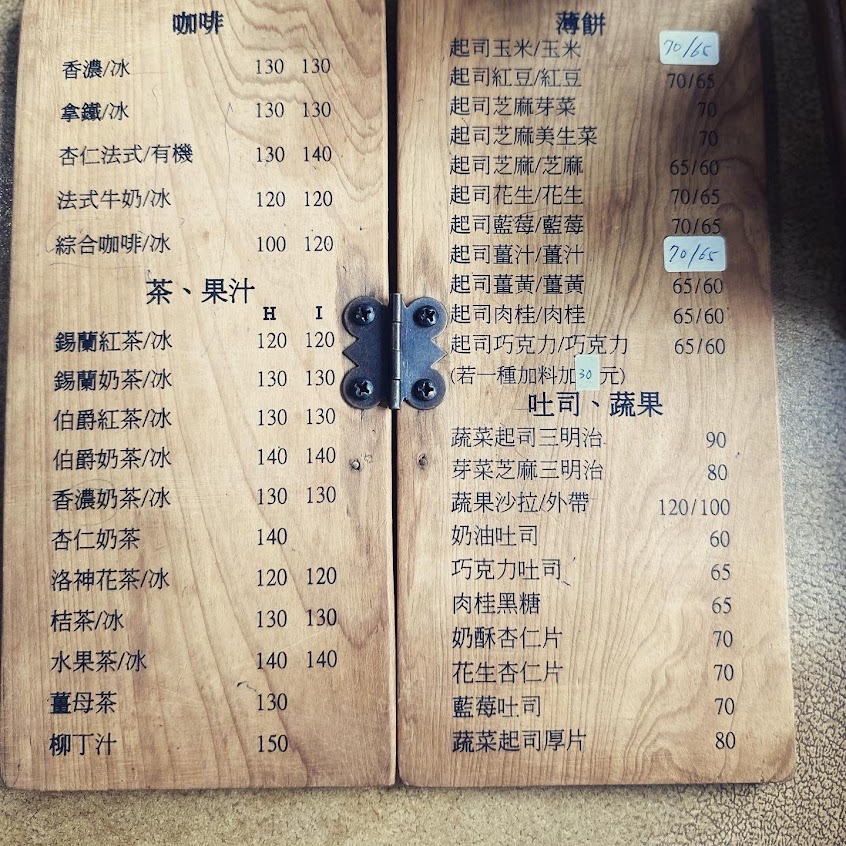 咖啡
香濃/冰 130 130
拿鐵/冰 130 130
杏仁法式/有機 130 140
法式牛奶/冰 120 120
綜合咖啡/冰 100 120
茶、果汁
H I
錫蘭紅茶/冰 120 120
錫蘭奶茶/冰 130 130
伯爵紅茶/冰 130 130
伯爵奶茶/冰 140 140
香濃奶茶/冰 130 130
杏仁奶茶 140
洛神花茶/冰 120 120
桔茶/冰 130 130
水果茶/冰 140 140
薑母茶 130
柳丁汁 150
薄餅
起司玉米/玉米 70/65
起司紅豆/紅豆 70/65
起司芝麻芽菜 70
起司芝麻美生菜 70
起司芝麻/芝麻 65/60
起司花生/花生 70/65
起司藍莓/藍莓 70/65
起司薑汁/薑汁 70/65
起司薑黃/薑黃 65/60
起司肉桂/肉桂 65/60
起司巧克力/巧克力 65/60
(若一種加料加30元)
吐司、蔬果
蔬菜起司三明治 90
芽菜芝麻三明治 80
蔬果沙拉/外帶 120/100
奶油吐司 60
巧克力吐司 65
肉桂黑糖 65
奶酥杏仁片 70
花生杏仁片 70
藍莓吐司 70
蔬菜起司厚片 80